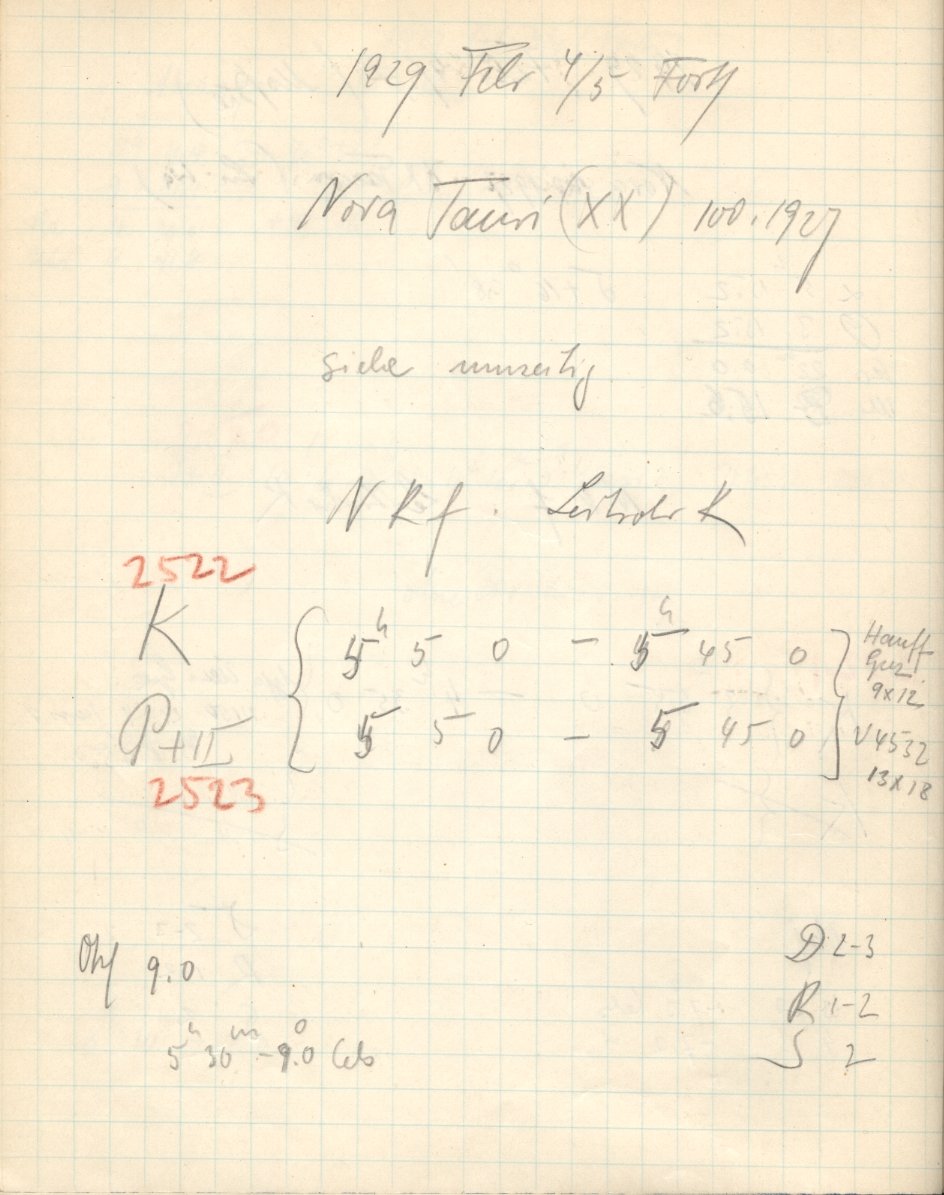 1929 Febr 4/5 Forts
Nova Tauri (XX) 100.1927
siehe umseitig
N R f. Leitrohr K
2522
K 5h 5 0 – 5h 45 0 Hauff
9x12
P+II 5 5 0 – 5 45 0 V4532
13x18
2523
D 2-3
Ohf 9.0
R 1-2
5h 30m -9.0° Cels
S 2